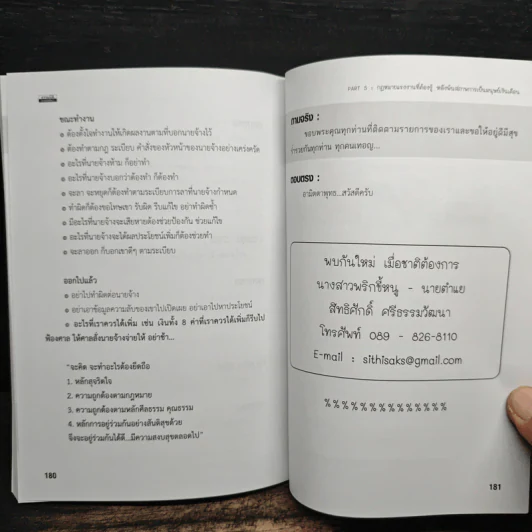 ขณะทำงาน
๑ ต้องตั้งใจทำงานให้เกิดผลงานตามที่บอกนายจ้างไว้
๑ ต้องทำตามกฎ ระเบียบ คำสั่งของหัวหน้าของนายจ้างอย่างเคร่งครัด
๑ อะไรที่นายจ้างห้าม ก็อย่าทำ
๑ อะไรที่นายจ้างบอกว่าต้องทำ ก็ต้องทำ
๑ จะลา จะหยุดก็ต้องทำตามระเบียบการลาที่นายจ้างกำหนด
๑ ทำผิดก็ต้องขอโทษเขา รับผิด รีบแก้ไข อย่าทำผิดซ้ำ
๑ มีอะไรที่นายจ้างจะเสียหายต้องช่วยป้องกัน ช่วยแก้ไข
๑ อะไรที่นายจ้างจะได้ผลประโยชน์เพิ่มก็ต้องช่วยทำ
๑ จะลาออก ก็บอกเขาดีๆ ตามระเบียบ
ออกไปแล้ว
๑ อย่าไปทำผิดต่อนายจ้าง
๑ อย่าเอาข้อมูลความลับของเขาไปเปิดเผย อย่าเอาไปหาประโยชน์
๑ อะไรที่เราควรได้เพิ่ม เช่น เงินทั้ง 8 ค่าที่เราควรได้เพิ่มก็รีบไป
ฟ้องศาล ให้ศาลสั่งนายจ้างจ่ายให้ อย่าช้า...
"จะคิด จะทำอะไรต้องยึดถือ
1. หลักสุจริตใจ
2. ความถูกต้องตามกฎหมาย
3. ความถูกต้องตามหลักศีลธรรม คุณธรรม
4. หลักการอยู่ร่วมกันอย่างสันติสุขด้วย
จึงจะอยู่ร่วมกันได้ดี...มีความสงบสุขตลอดไป"
180
PART 5 : กฎหมายแรงงานที่ต้องรู้ หลังพ้นสภาพการเป็นมนุษย์เงินเดือน
ถามจริง :
ขอบพระคุณทุกท่านที่ติดตามรายการของเราและขอให้อยู่ดีมีสุข
ร่ำรวยกันทุกท่าน ทุกคนเทอญ...
ตอบตรง :
อามิตตาพุทธ...สวัสดีครับ
พบกันใหม่ เมื่อชาติต้องการ
นางสาวพริกขี้หนู - นายตำแย
สิทธิศักดิ์ ศรีธรรมวัฒนา
โทรศัพท์ 089 - 826-8110
E-mail : sithisaks@gmail.com
%%%%%%%%%%%%%%
181